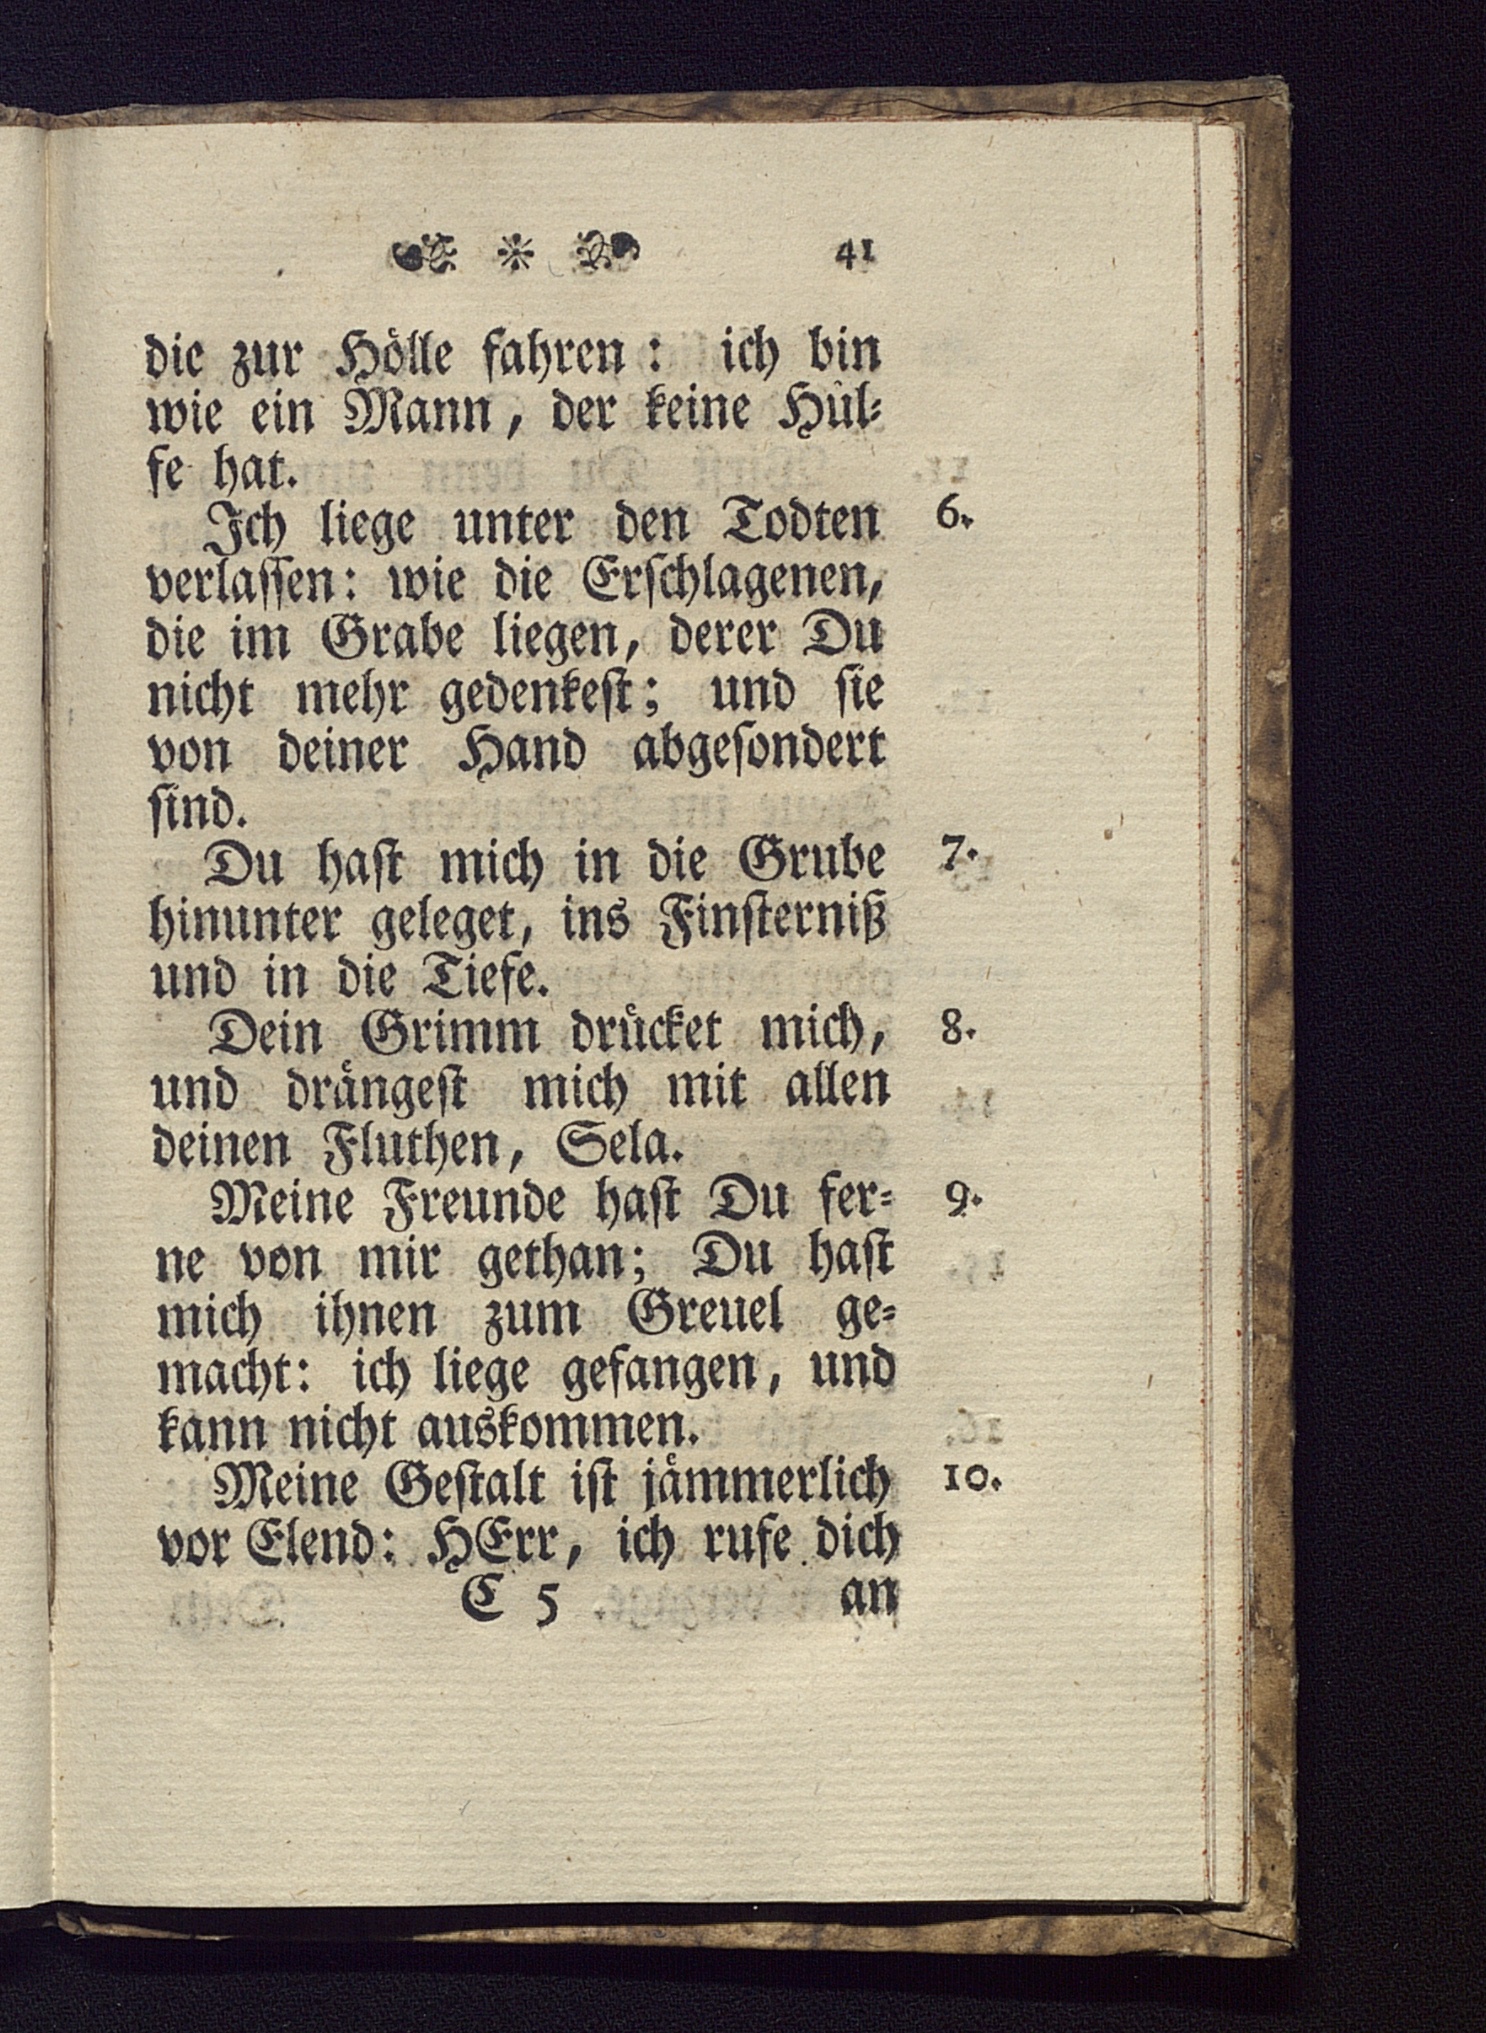 * 41
die zur Hölle fahren: ich bin
wie ein Mann, der keine Hül-
fe hat.
Ich liege unter den Todten 6.
verlaſſen: wie die Erſchlagenen,
die im Grabe liegen, derer Du
nicht mehr gedenkeſt; und ſie
von deiner Hand abgeſondert
ſind.
Du haſt mich in die Grube 7.
hinunter geleget, ins Finſterniß
und in die Tiefe.
Dein Grimm drücket mich, 8.
und drängeſt mich mit allen
deinen Fluthen, Sela.
Meine Freunde haſt Du fer- 9.
ne von mir gethan; Du haſt
mich ihnen zum Greuel ge-
macht: ich liege gefangen, und
kann nicht auskommen.
Meine Geſtalt iſt jämmerlich 10.
vor Elend: HErr, ich rufe dich
C 5 an